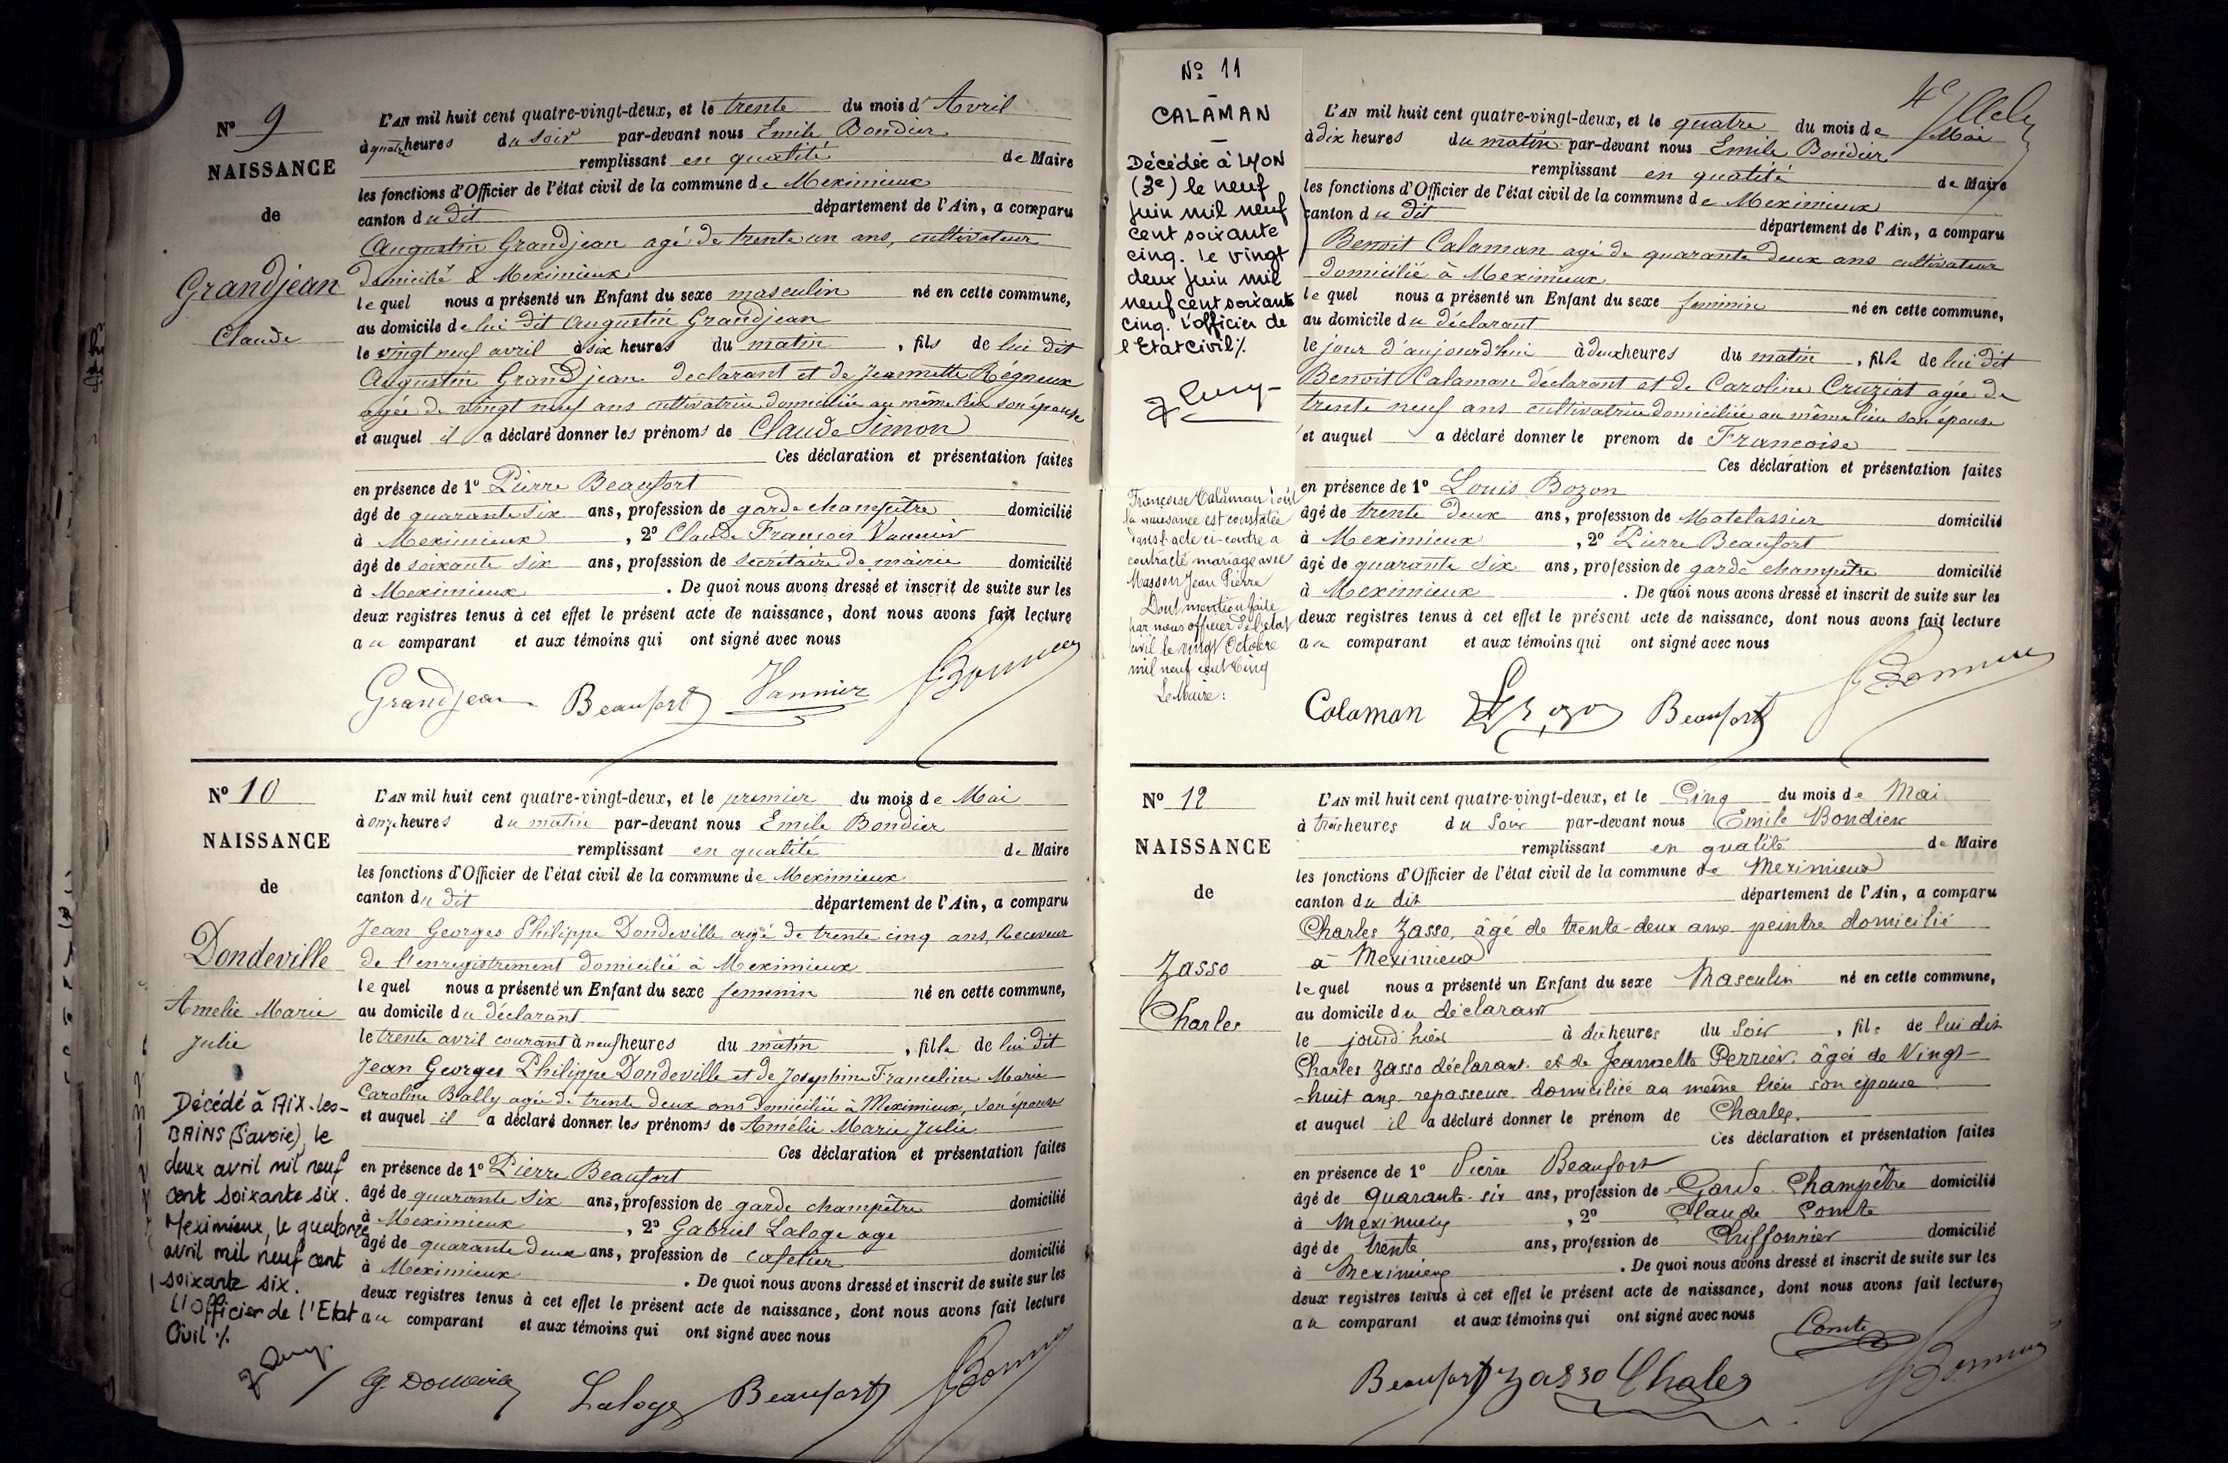 Nº 9
NAISSANCE
de
Grandjean
Claude
L'AN mil huit cent quatre-vingt-deux, et le trente du mois d'Avril
à quatre heures du soir par-devant nous Emile Bondier
remplissant en qualité de Maire
les fonctions d'Officier de l'état civil de la commune de Meximieux
canton du dit département de l'Ain, a comparu
Augustin Grandjean agé de trente un ans, cultivateur
domicilié à Meximieux
lequel nous a présenté un Enfant du sexe masculin né en cette commune,
au domicile de lui dit Augustin Grandjean
le vingt neuf avril à six heures du matin, fils de lui dit
Augustin Grandjean declarant et de Jeannette Régneux
agée de vingt neuf ans cultivatrice domiciliée au même lieu son épouse
et auquel il a déclaré donner les prénoms de Claude Simon
Ces déclaration et présentation faites
en présence de 1º Pierre Beaufort
âgé de quarante six ans, profession de garde champêtre domicilié
à Meximieux, 2º Claude François Vannier
âgé de soixante six ans, profession de secrétaire de mairie domicilié
à Meximieux. De quoi nous avons dressé et inscrit de suite sur les
deux registres tenus à cet effet le présent acte de naissance, dont nous avons fait lecture
au comparant et aux témoins qui ont signé avec nous
Grandjean Beaufort Vannier
Nº 10
NAISSANCE
de
Dondeville
Amelie Marie
Julie
Décédé à AIX-les-
BAINS (Savoie), le
deux avril mil neuf
cent soixante six.
Meximieux, le quatorze
avril mil neuf cent
soixante six.
L'Officier de l'Etat
Civil %
L'AN mil huit cent quatre-vingt-deux, et le premier du mois de Mai
à onze heures du matin par-devant nous Emile Bondier
remplissant en qualité de Maire
les fonctions d'Officier de l'état civil de la commune de Meximieux
canton du dit département de l'Ain, a comparu
Jean Georges Philippe Dondeville agé de trente cinq ans, Receveur
de l'enregistrement domicilié à Meximieux
lequel nous a présenté un Enfant du sexe femenin né en cette commune,
au domicile du déclarant
le trente avril courant à neuf heures du matin, fille de lui dit
Jean Georges Philippe Dondeville et de Josephine Franceline Marie
Caroline Bally agée de trente deux ans domiciliée à Meximieux, son épouse
et auquel il a déclaré donner les prénoms de Amélie Marie Julie
Ces déclaration et présentation faites
en présence de 1º Pierre Beaufort
âgé de quarante six ans, profession de garde champêtre domicilié
à Meximieux, 2º Gabriel Laloge age
âgé de quarante deux ans, profession de cafetier domicilié
à Meximieux. De quoi nous avons dressé et inscrit de suite sur les
deux registres tenus à cet effet le présent acte de naissance, dont nous avons fait lecture
au comparant et aux témoins qui ont signé avec nous
Laloge Beaufort
Nº 11
CALAMAN
Décédée à LYON
(3e) le neuf
juin mil neuf
cent soixante
cinq. le vingt
deux juin mil
neuf cent soixante
cinq. L'officier de
l'Etat Civil %.
Françoise Calaman dont
la naissance est constatée
dans l'acte ci-contre a
contracté mariage avec
Masson Jean Pierre
Dont mention faite
par nous officier de l'état
civil le vingt Octobre
mil neuf cent cinq
Le Maire:
L'AN mil huit cent quatre-vingt-deux, et le quatre du mois de Mai
à dix heures du matin par-devant nous Emile Bondier
remplissant en qualité de Maire
les fonctions d'Officier de l'état civil de la commune de Meximieux
canton du dit département de l'Ain, a comparu
Benoit Calaman agé de quarante deux ans cultivateur
domicilié à Meximieux
lequel nous a présenté un Enfant du sexe feminin né en cette commune,
au domicile du déclarant
le jour d'aujourd'hui à deux heures du matin, fille de lui dit
Benoit Calaman déclarant et de Caroline Cruziat agée de
trente neuf ans cultivatrice domiciliée au même lieu son épouse
et auquel a déclaré donner le prenom de Francoise
Ces déclaration et présentation faites
en présence de 1º Louis Bozon
âgé de trente deux ans, profession de Matelassier domicilié
à Meximieux, 2º Pierre Beaufort
âgé de quarante six ans, profession de garde champêtre domicilié
à Meximieux. De quoi nous avons dressé et inscrit de suite sur les
deux registres tenus à cet effet le présent acte de naissance, dont nous avons fait lecture
au comparant et aux témoins qui ont signé avec nous
Calaman Bozon Beaufort
Nº 12
NAISSANCE
de
Zasso
Charles
L'AN mil huit cent quatre-vingt-deux, et le Cinq du mois de Mai
à trois heures du Soir par-devant nous Emile Bondier
remplissant en qualité de Maire
les fonctions d'Officier de l'état civil de la commune de Meximieux
canton du dit département de l'Ain, a comparu
Charles Zasso, âgé de trente-deux ans peintre domicilié
à Meximieux
lequel nous a présenté un Enfant du sexe Masculin né en cette commune,
au domicile du déclarant
le jourd'hier à dix heures du Soir, fils de lui dit
Charles Zasso déclarant et de Jeannette Perrier âgée de Vingt-
-huit ans repasseuse domiciliée au même lieu son épouse
et auquel il a déclaré donner le prénom de Charles.
Ces déclaration et présentation faites
en présence de 1º Pierre Beaufort
âgé de quarante-six ans, profession de Garde-Champêtre domicilié
à Meximieux, 2º Claude Comte
âgé de trente ans, profession de Chiffonnier domicilié
à Meximieux. De quoi nous avons dressé et inscrit de suite sur les
deux registres tenus à cet effet le présent acte de naissance, dont nous avons fait lecture
au comparant et aux témoins qui ont signé avec nous
Comte
Beaufort Zasso Chales